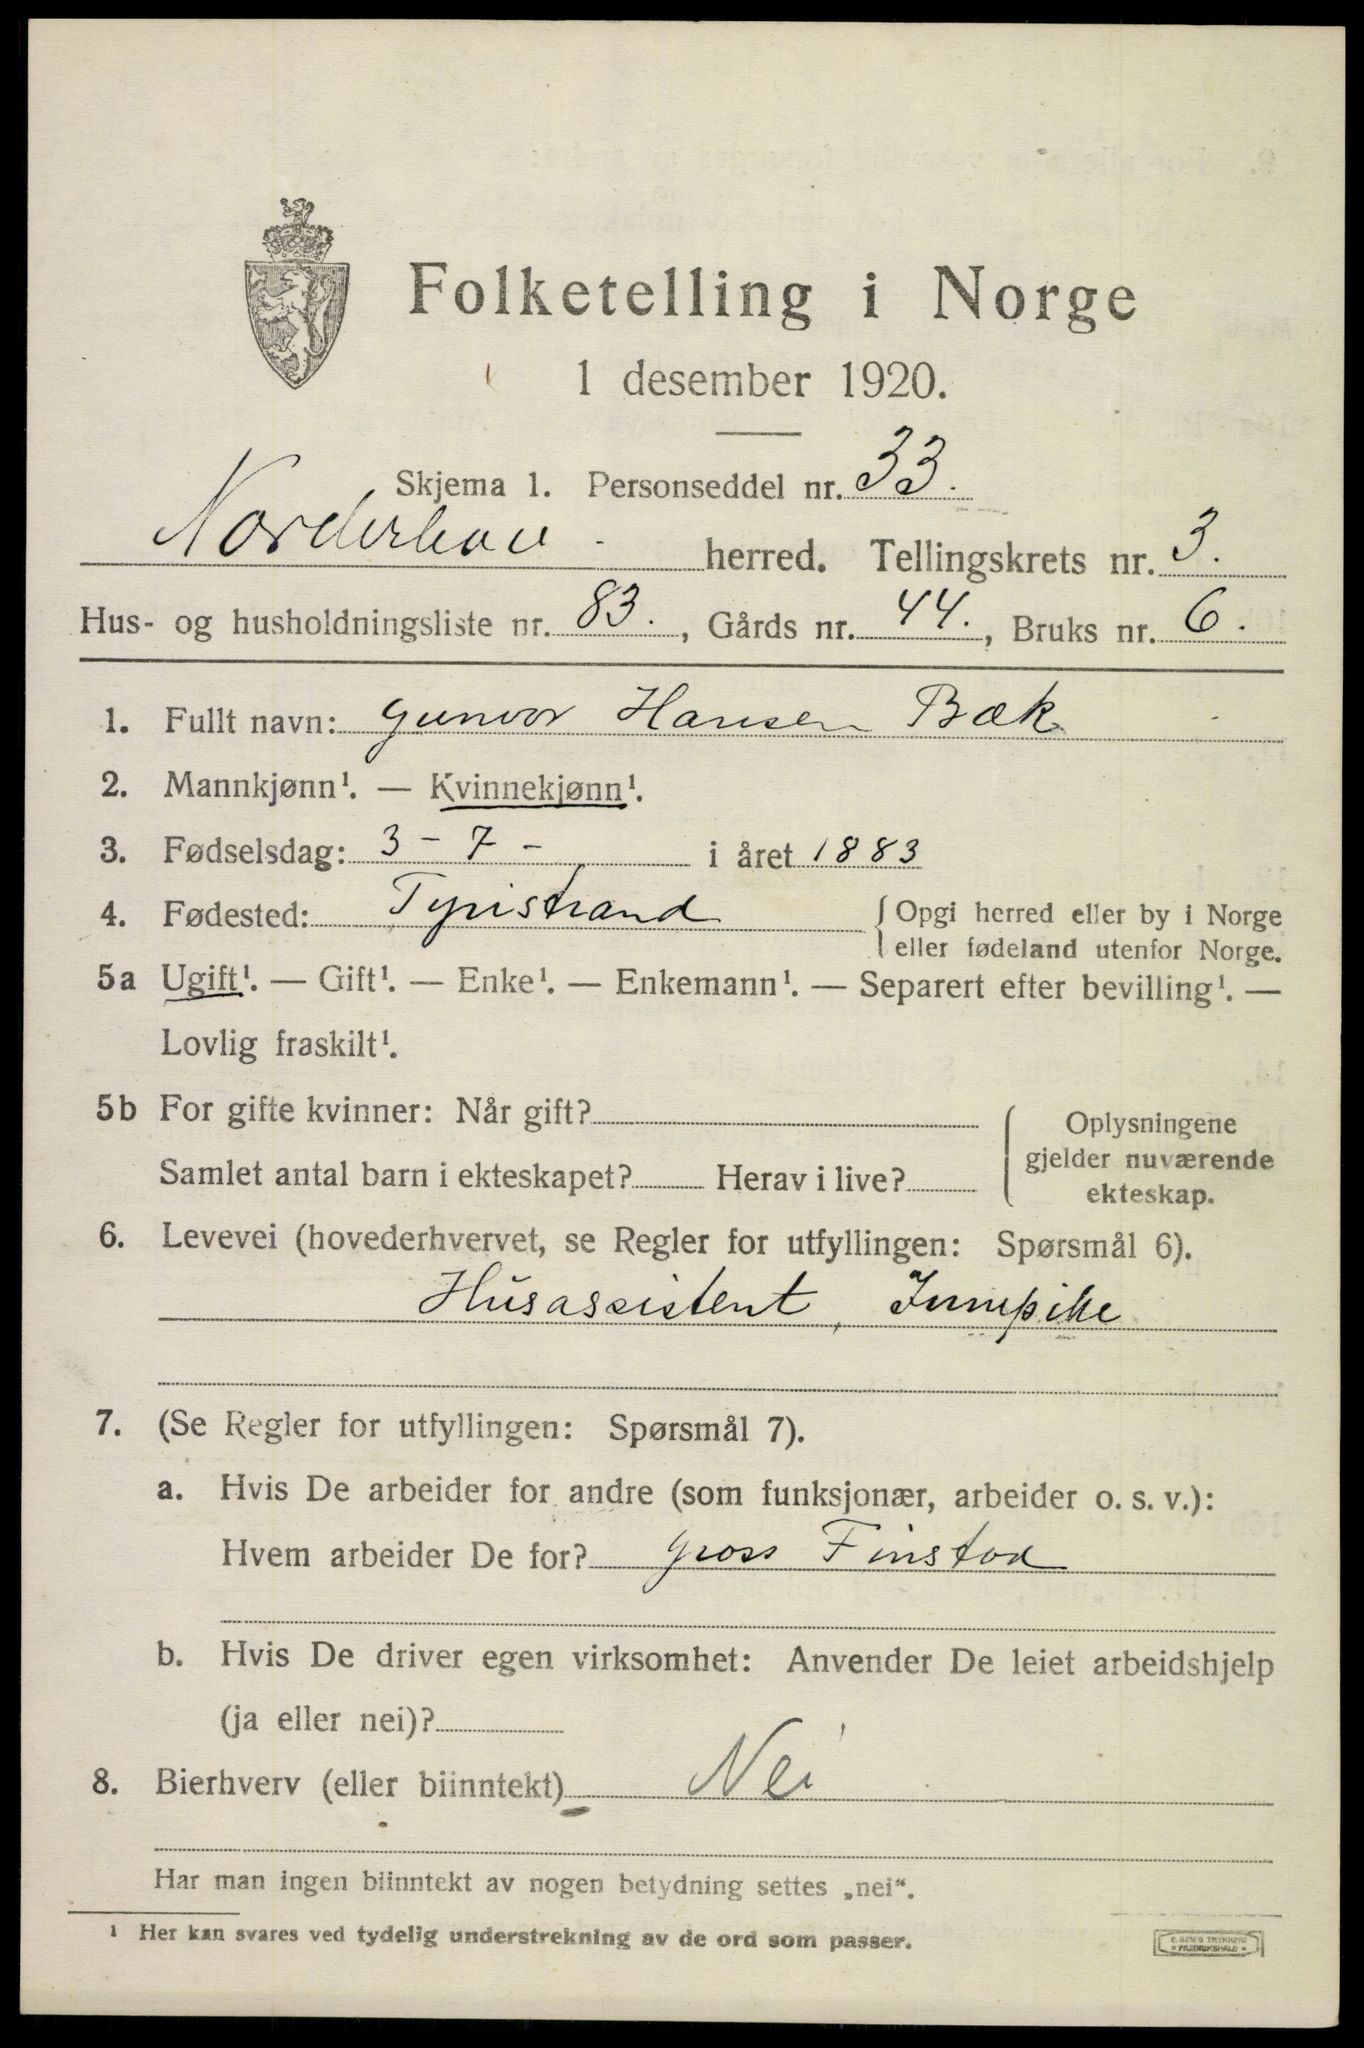 Folketelling i Norge
1 desember 1920.
Skjema 1. Personseddel nr. 33.
Norderhov herred. Tellingskrets nr. 3.
Hus- og husholdningsliste nr. 83., Gårds nr. 44., Bruks nr. 6.
1. Fullt navn: Gunvor Hansen Bæk
2. Mannkjønn¹. — Kvinnekjønn¹.
3. Fødselsdag: 3 - 7 - i året 1883
4. Fødested: Tyristrand
{ Opgi herred eller by i Norge
eller fødeland utenfor Norge.
5a Ugift¹. — Gift¹. — Enke¹. — Enkemann¹. — Separert efter bevilling¹. —
Lovlig fraskilt¹.
5b For gifte kvinner: Når gift?
Samlet antal barn i ekteskapet? Herav i live?
Oplysningene
gjelder nuværende
ekteskap.
6. Levevei (hovederhvervet, se Regler for utfyllingen: Spørsmål 6).
Husassistent, Innepike
7. (Se Regler for utfyllingen: Spørsmål 7).
a. Hvis De arbeider for andre (som funksjonær, arbeider o. s. v.):
Hvem arbeider De for? Gross Finstad
b. Hvis De driver egen virksomhet: Anvender De leiet arbeidshjelp
(ja eller nei)?
8. Bierhverv (eller biinntekt) Nei
Har man ingen biinntekt av nogen betydning settes „nei“.
¹ Her kan svares ved tydelig understrekning av de ord som passer.